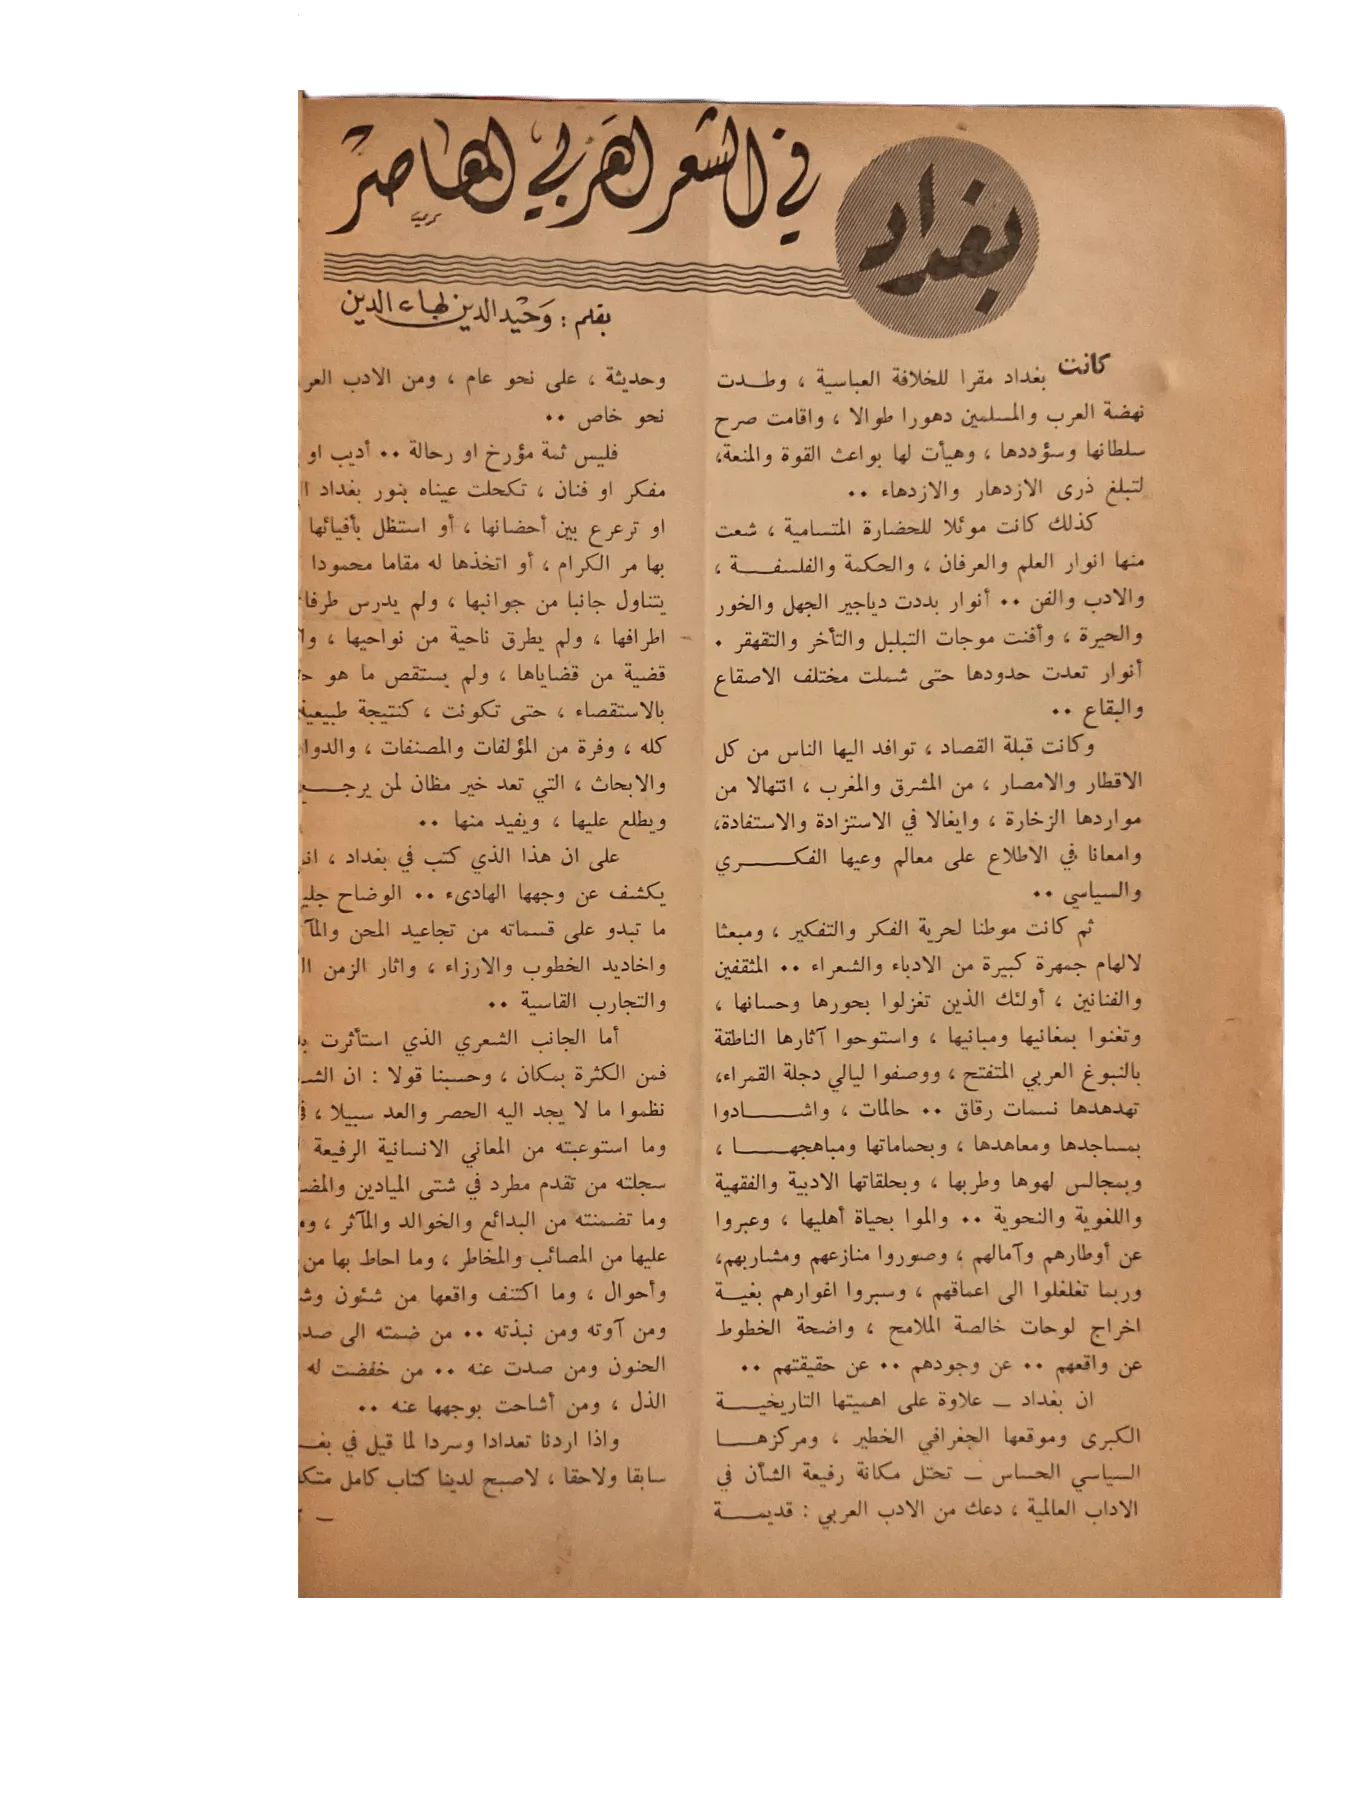 بغداد
في الشعر العربي المعاصر
بقلم : وحيد الدين بهاء الدين
كانت بغداد مقرا للخلافة العباسية ، وطدت
نهضة العرب والمسلمين دهورا طوالا ، واقامت صرح
سلطانها وسؤددها ، وهيأت لها بواعث القوة والمنعة،
لتبلغ ذرى الازدهار والازدهاء ..
كذلك كانت موئلا للحضارة المتسامية ، شعت
منها انوار العلم والعرفان ، والحكمة والفلسفة ،
والادب والفن .. أنوار بددت دياجير الجهل والخور
والحيرة ، وأفنت موجات التبلبل والتأخر والتقهقر .
أنوار تعدت حدودها حتى شملت مختلف الاصقاع
والبقاع ..
وكانت قبلة القصاد ، توافد اليها الناس من كل
الاقطار والامصار ، من المشرق والمغرب ، انتهالا من
مواردها الزخارة ، وايغالا في الاستزادة والاستفادة،
وامعانا في الاطلاع على معالم وعيها الفكري
والسياسي ..
ثم كانت موطنا لحرية الفكر والتفكير ، ومبعثا
لالهام جمهرة كبيرة من الادباء والشعراء .. المثقفين
والفنانين ، أولئك الذين تغزلوا بحورها وحسانها ،
وتغنوا بمغانيها ومبانيها ، واستوحوا آثارها الناطقة
بالنبوغ العربي المتفتح ، ووصفوا ليالي دجلة القمراء،
تهدهدها نسمات رقاق .. حالمات ، واشادوا
بمساجدها ومعاهدها ، وبحماماتها ومباهجها ،
وبمجالس لهوها وطربها ، وبحلقاتها الادبية والفقهية
واللغوية والنحوية .. والموا بحياة أهليها ، وعبروا
عن أوطارهم وآمالهم ، وصوروا منازعهم ومشاربهم،
وربما تغلغلوا الى اعماقهم ، وسبروا اغوارهم بغية
اخراج لوحات خالصة الملامح ، واضحة الخطوط
عن واقعهم .. عن وجودهم .. عن حقيقتهم ..
ان بغداد ــ علاوة على اهميتها التاريخية
الكبرى وموقعها الجغرافي الخطير ، ومركزها
السياسي الحساس ــ تحتل مكانة رفيعة الشأن في
الاداب العالمية ، دعك من الادب العربي : قديمة
وحديثة ، على نحو عام ، ومن الادب
نحو خاص ..
فليس ثمة مؤرخ او رحالة .. أديب او
مفكر او فنان ، تكحلت عيناه بنور بغداد
او ترعرع بين أحضانها ، أو استظل بأفيائها
بها مر الكرام ، أو اتخذها له مقاما محمودا
يتناول جانبا من جوانبها ، ولم يدرس
اطرافها ، ولم يطرق ناحية من نواحيها ،
قضية من قضاياها ، ولم يستقص ما هو
بالاستقصاء ، حتى تكونت ، كنتيجة طبيعية
كله ، وفرة من المؤلفات والمصنفات ،
والابحاث ، التي تعد خير مظان لمن يرجع
ويطلع عليها ، ويفيد منها ..
على ان هذا الذي كتب في بغداد ،
يكشف عن وجهها الهادىء .. الوضاح
ما تبدو على قسماته من تجاعيد المحن
واخاديد الخطوب والارزاء ، واثار الزمن
والتجارب القاسية ..
أما الجانب الشعري الذي استأثرت
فمن الكثرة بمكان ، وحسبنا قولا : ان
نظموا ما لا يجد اليه الحصر والعد سبيلا ،
وما استوعبته من المعاني الانسانية الرفيعة
سجلته من تقدم مطرد في شتى الميادين
وما تضمنته من البدائع والخوالد والمآثر ،
عليها من المصائب والمخاطر ، وما احاط بها من
وأحوال ، وما اكتنف واقعها من شئون
ومن آوته ومن نبذته .. من ضمته الى
الحنون ومن صدت عنه .. من خفضت له
الذل ، ومن أشاحت بوجهها عنه ..
واذا اردنا تعدادا وسردا لما قيل في
سابقا ولاحقا ، لاصبح لدينا كتاب كامل